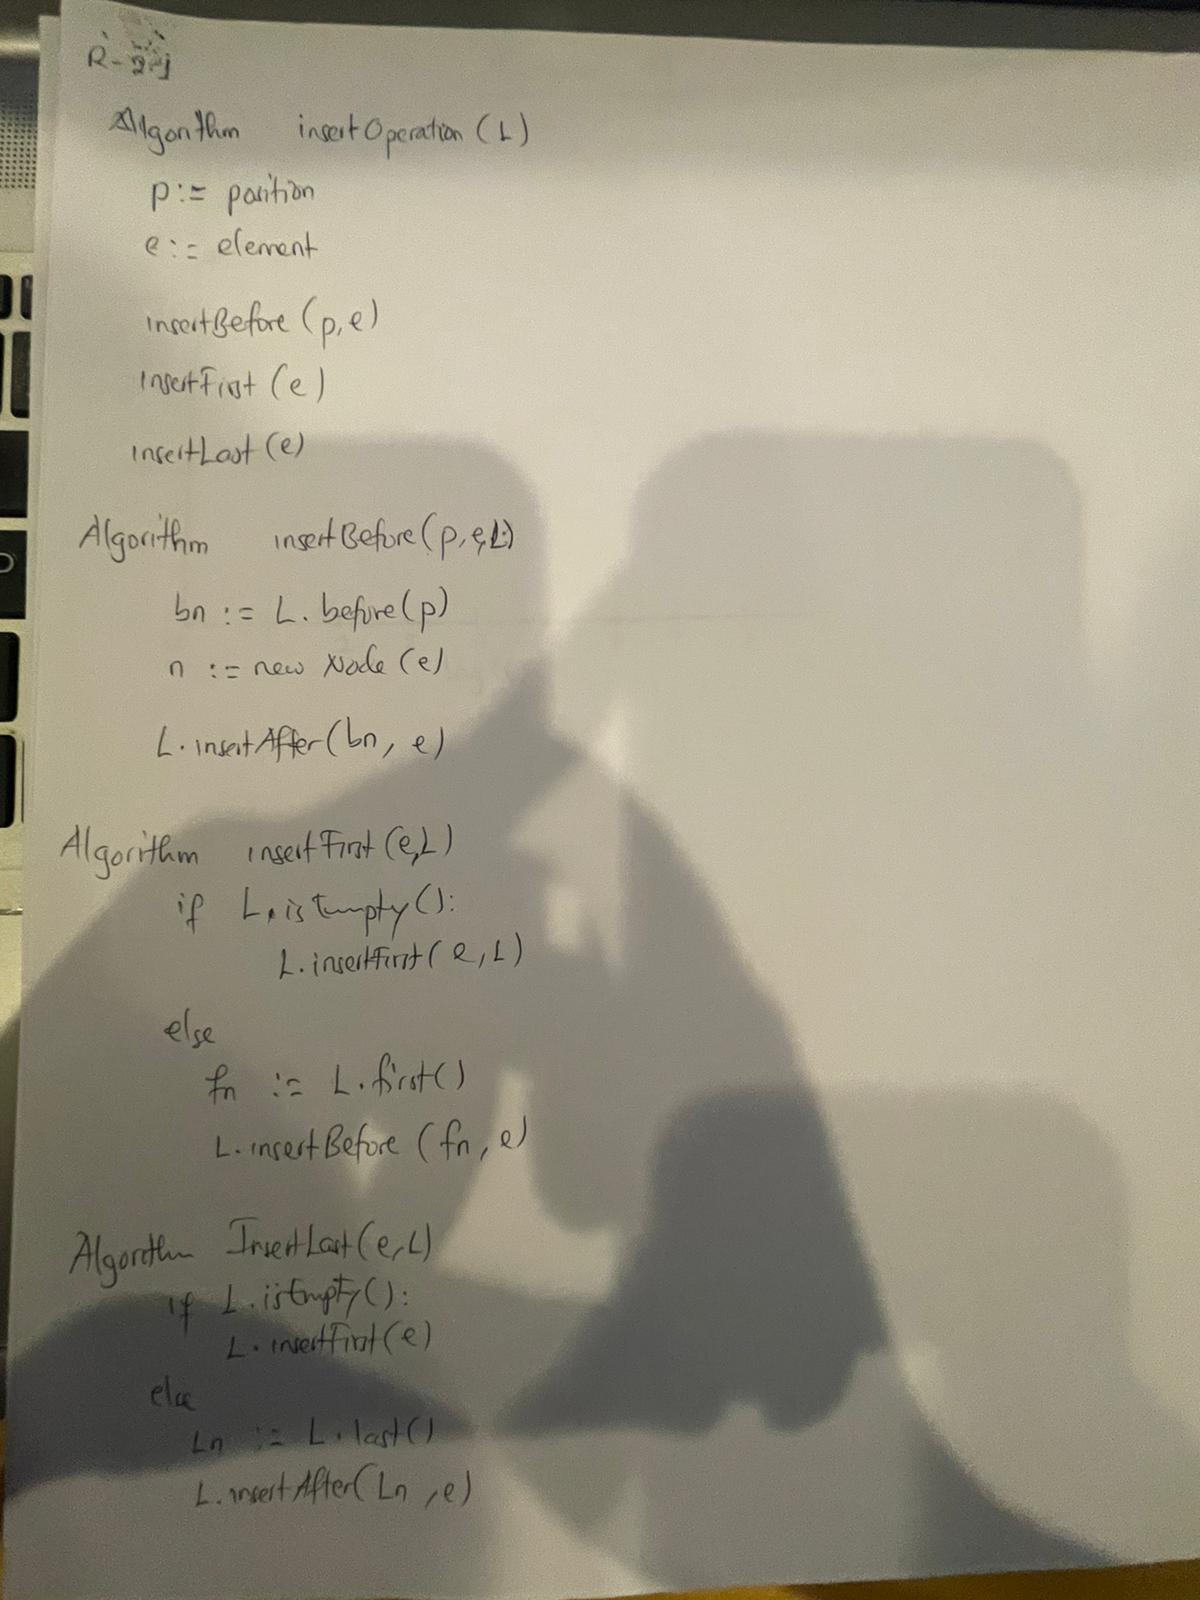 Algorithm insertOperation (L)
p := position
e := element
insertBefore (p, e)
insertFirst (e)
insertLast (e)
Algorithm insertBefore (p, e, L)
bn := L. before (p)
n := new Node (e)
L. insertAfter (bn, e)
Algorithm insertFirst (e, L)
if L. isEmpty ():
L. insertFirst ( e, L )
else
fn := L. first ()
L. insertBefore ( fn, e )
Algorithm InsertLast (e, L)
if L. isEmpty ():
L. insertFirst (e)
else
Ln := L. last ()
L. insertAfter ( Ln , e )